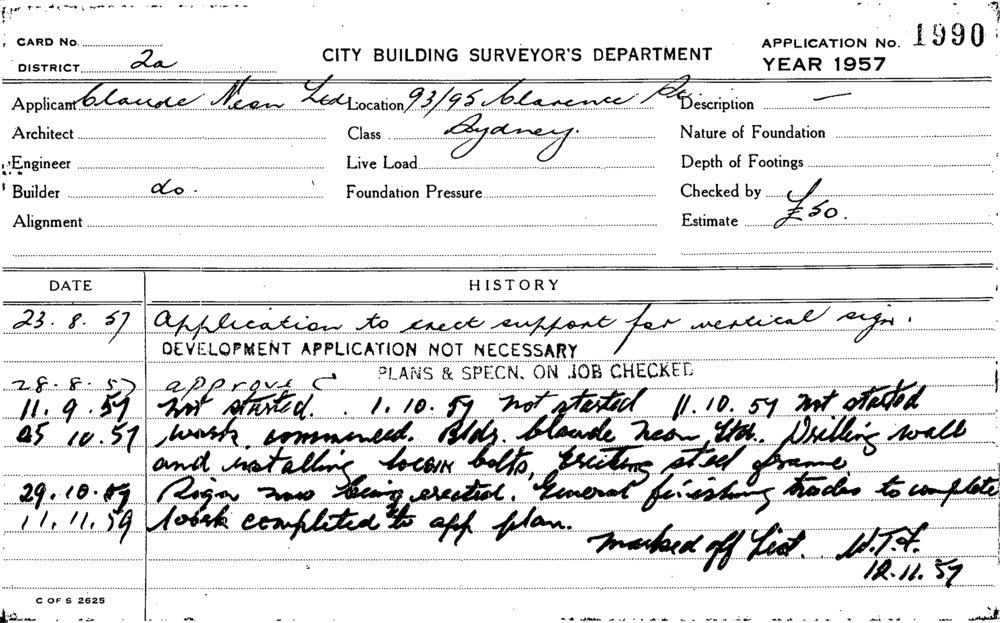 CARD No.
DISTRICT 2a
CITY BUILDING SURVEYOR'S DEPARTMENT
APPLICATION No. 1990
YEAR 1957
Applicant Claude Neon Ltd Location 93/95 Clarence St. Description —
Architect Class Sydney. Nature of Foundation
Engineer Live Load Depth of Footings
Builder do. Foundation Pressure Checked by
Alignment Estimate £50.
DATE HISTORY
23.8.57 Application to erect support for vertical sign.
DEVELOPMENT APPLICATION NOT NECESSARY
PLANS & SPECN. ON JOB CHECKED
28.8.57 approved
11.9.57 Not started. 1.10.57 not started 11.10.57 not started
25 10.57 work commenced. Bldr. Claude Neon Ltd. Drilling wall
and installing bolts, erecting steel frame.
29.10.57 Sign now being erected. General finishing trades to complete
11.11.59 work completed to app plan.
Marked off List. W.T.F.
12.11.57
C OF S 2625